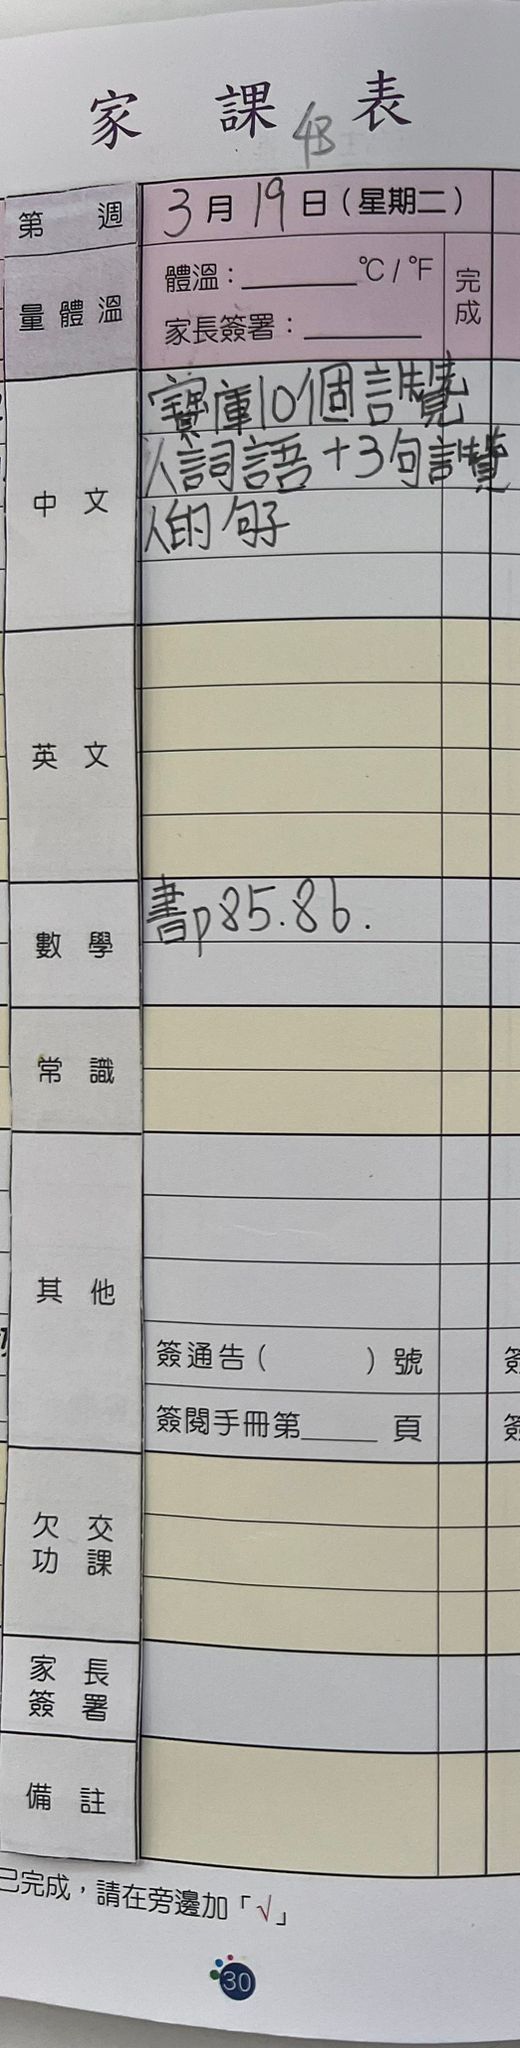 家課表
4B
第 週 3月19日(星期二)
量體溫 體溫：______°C/°F 完成
家長簽署：______
中文 寶庫10個讚
人詞語+3句讚
人的句子
英文
數學 書p85.86.
常識
其他
簽通告( )號 簽
簽閱手冊第____頁 簽
欠交
功課
家長
簽署
備註
已完成，請在旁邊加「√」
30